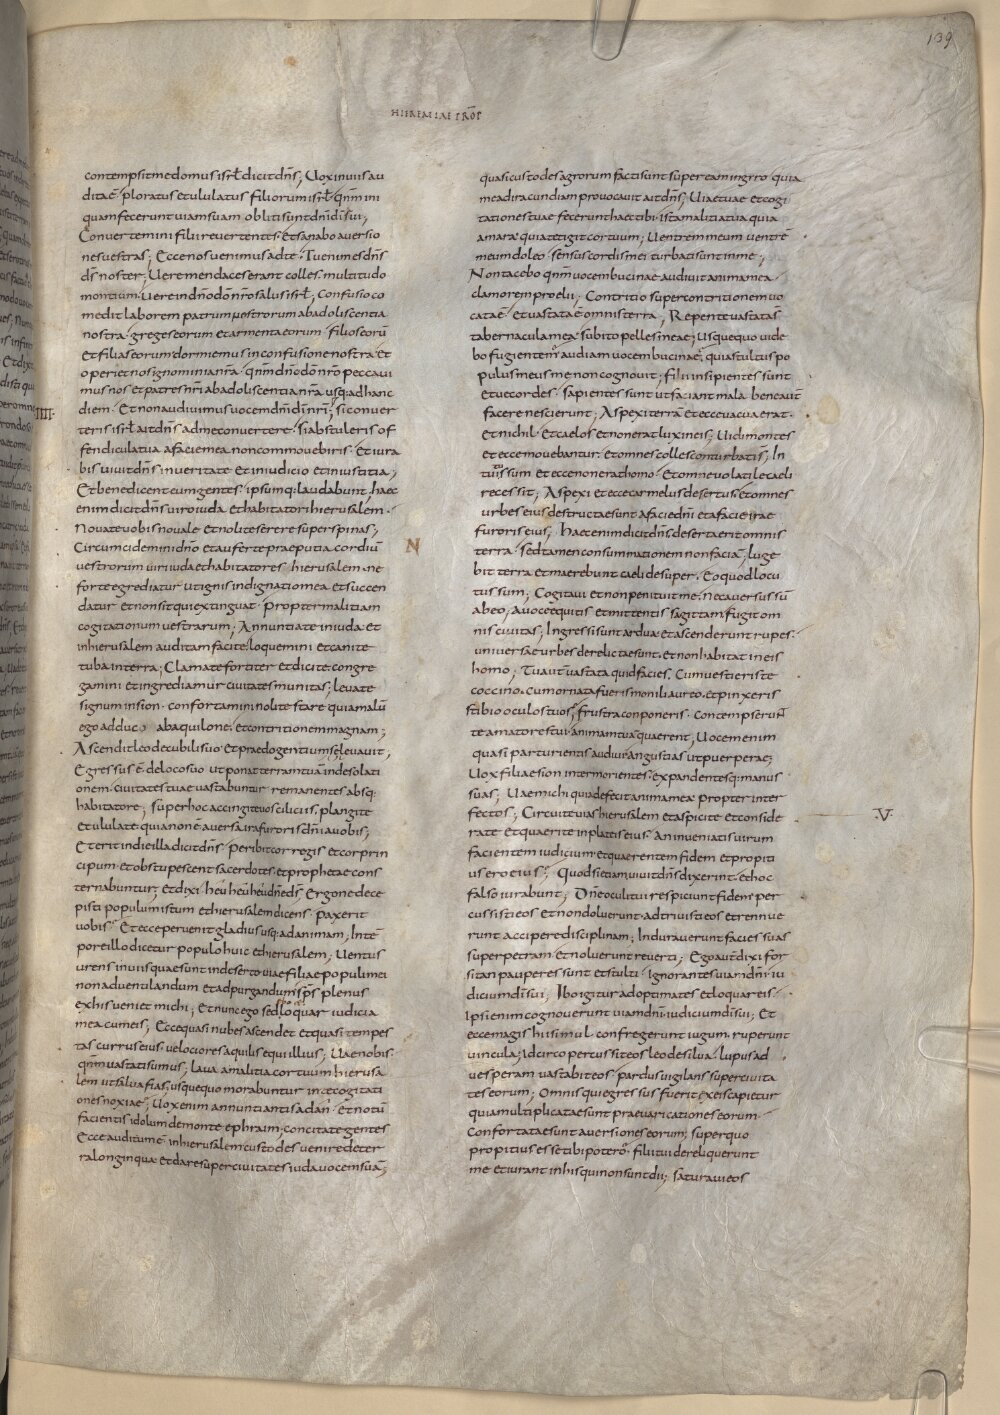 139
HIEREMIAE PROP
contempsit me domus isrl dicit dns; Uox in uiis au
dita e ploratus et ululatus filiorum isrl qnm ini
quam fecerunt uiam suam obliti sunt dni di sui;
Conuertemini filii reuertentes et sanabo auersio
nes uestras; Ecce nos uenimus ad te. Tu enim es dns
ds noster; Uere mendaces erant colles multitudo
montium. Uere in dno do nro salus isrl; Confusio co
medit laborem patrum nostrorum ab adoliscentia
nostra greges eorum et armenta eorum filios eoru
et filias eorum dormiemus in confusione nostra et
operiet nos ignominia nra. qnm dno do nro peccaui
mus nos et patres nri ab adoliscentia nra usq; ad hanc
diem. Et non audiuimus uocem dni di nri; si conuer
IIII
teris isrl ait dns ad me conuertere. Si abstuleris of
fendicula tua a facie mea non commoueberis. Et iura
bis uiuit dns in ueritate et in iudicio et in iustitia;
Et benedicent eum gentes ipsumq; laudabunt, haec
enim dicit dns uiro iuda et habitatori hierusalem.
Nouate uobis nouale et nolite serere super spinas;
Circumcidemini dno et auferte praeputia cordiu
N
uestrorum uiri iuda et habitatores hierusalem. ne
forte egrediatur ut ignis indignatio mea et succen
datur et non sit qui extinguat propter malitiam
cogitationum uestrarum; Annuntiate in iuda et
in hierusalem auditam facite. loquemini et canite
tuba in terra; Clamate fortiter et dicite. congre
gamini et ingrediamur ciuitates munitas; leuate
signum in sion. confortamini nolite stare quia malu
ego adduco ab aquilone. et contritionem magnam;
Ascendit leo de cubili suo et praedo gentium se leuauit;
Egressus e de loco suo ut ponat terram tua in desolati
onem. ciuitates tuae uastabuntur remanentes absq;
habitatore; super hoc accingite uos ciliciis. plangite
et ululate. quia non e auersa ira furoris dni a uobis;
Et erit in die illa dicit dns peribit cor regis et cor prin
cipum. et obstupescent sacerdotes et prophetae cons
ternabuntur; et dixi heu heu heu dne ds; Ergone dece
pisti populum istum et hierusalem dicens. pax erit
uobis. Et ecce peruenit gladius usq; ad animam; In te
pore illo dicetur populo huic et hierusalem; Uentus
urens in uiis quae sunt in deserto uiae filiae populi mei
non ad uentilandum et ad purgandum sps plenus
ex his ueniet michi; et nunc ego sed loquar iudicia
mea cum eis; Ecce quasi nubes ascendet et quasi tempes
tas currus eius. uelociores aquilis equi illius; Uae nobis
qnm uastati sumus; laua a malitia cor tuum hierusa
lem ut salua fias; usquequo morabuntur in te cogitati
ones noxiae; Uox enim annuntiantis a dan. et notu
facientis idolum de monte ephraim; concitate gentes
Ecce auditum e in hierusalem custodes uenire de ter
ra longinqua et dare super ciuitates iuda uocem sua;
quasi custodes agrorum facti sunt super eam in gyro quia
me ad iracundiam prouocauit ait dns; Uiae tuae et cogi
tationes tuae fecerunt haec tibi. ista malitia tua quia
amara. quia tetigit cor tuum; Uentrem meum uentre
meum doleo. sensus cordis mei turbati sunt in me;
Non tacebo qnm uocem bucinae audiuit anima mea.
clamorem proelii; Contritio super contritionem uo
cata e et uastata e omnis terra; Repente uastata s
tabernacula mea subito pelles meae; Usquequo uide
bo fugientem audiam uocem bucinae; quia stultus po
pulus meus me non cognouit; filii insipientes sunt
et uecordes. sapientes sunt ut faciant mala. bene aut
facere nescierunt; Aspexi terra et ecce uacua erat.
et nichil. Et caelos et non erat lux in eis; Uidi montes
et ecce mouebantur. et omnes colles conturbati s; In
tuitus sum et ecce non erat homo. Et omne uolatile caeli
recessit; Aspexi et ecce carmelus desertus. et omnes
urbes eius destructae sunt a facie dni et a facie irae
furoris eius; Haec enim dicit dns deserta erit omnis
terra. sed tamen consummationem non facia; luge
bit terra et maerebunt caeli desuper. Eo quod locu
tus sum; Cogitaui et non penituit me. Nec auersus su
ab eo; A uoce equitis et mittentis sagittam fugit om
nis ciuitas; Ingressi sunt ardua et ascenderunt rupes.
uniuersae urbes derelictae sunt. et non habitat in eis
homo; Tu aut uastata quid facies. Cum uestieris te
coccino. cum ornata fueris monili aureo. et pinxeris
stibio oculos tuos; frustra conponeris. contempserut
te amatores tui animam tua quaerent; Uocem enim
quasi parturientis audiui angustias ut puerperae;
Uox filiae sion intermorientis. expandentesq; manus
suas; Uae michi quia defecit anima mea propter inter
fectos; Circuite uias hierusalem et aspicite et conside
V
rate et quaerite in plateis eius. an inueniatis uirum
facientem iudicium et quaerentem fidem et propiti
us ero eius; Quod si etiam uiuit dns dixerint. et hoc
falso iurabunt; Dne oculi tui respiciunt fidem per
cussisti eos et non doluerunt. adtriuisti eos et rennue
runt accipere disciplinam; Indurauerunt facies suas
super petram et noluerunt reuerti; Ego aut dixi for
sitan pauperes sunt et stulti. ignorantes uiam dni iu
dicium di sui; Ibo igitur ad optimates et loquar eis.
ipsi enim cognouerunt uiam dni. iudicium di sui; Et
ecce magis hi simul confregerunt iugum. ruperunt
uincula; Idcirco percussit eos leo de silua. lupus ad
uesperam uastabit eos. pardus uigilans super ciuita
tes eorum; Omnis qui egressus fuerit ex eis capietur
quia multiplicatae sunt praeuaricationes eorum.
Confortatae sunt auersiones eorum; super quo
propitius esse tibi potero. filii tui dereliquerunt
me et iurant in his qui non sunt dii; saturaui eos